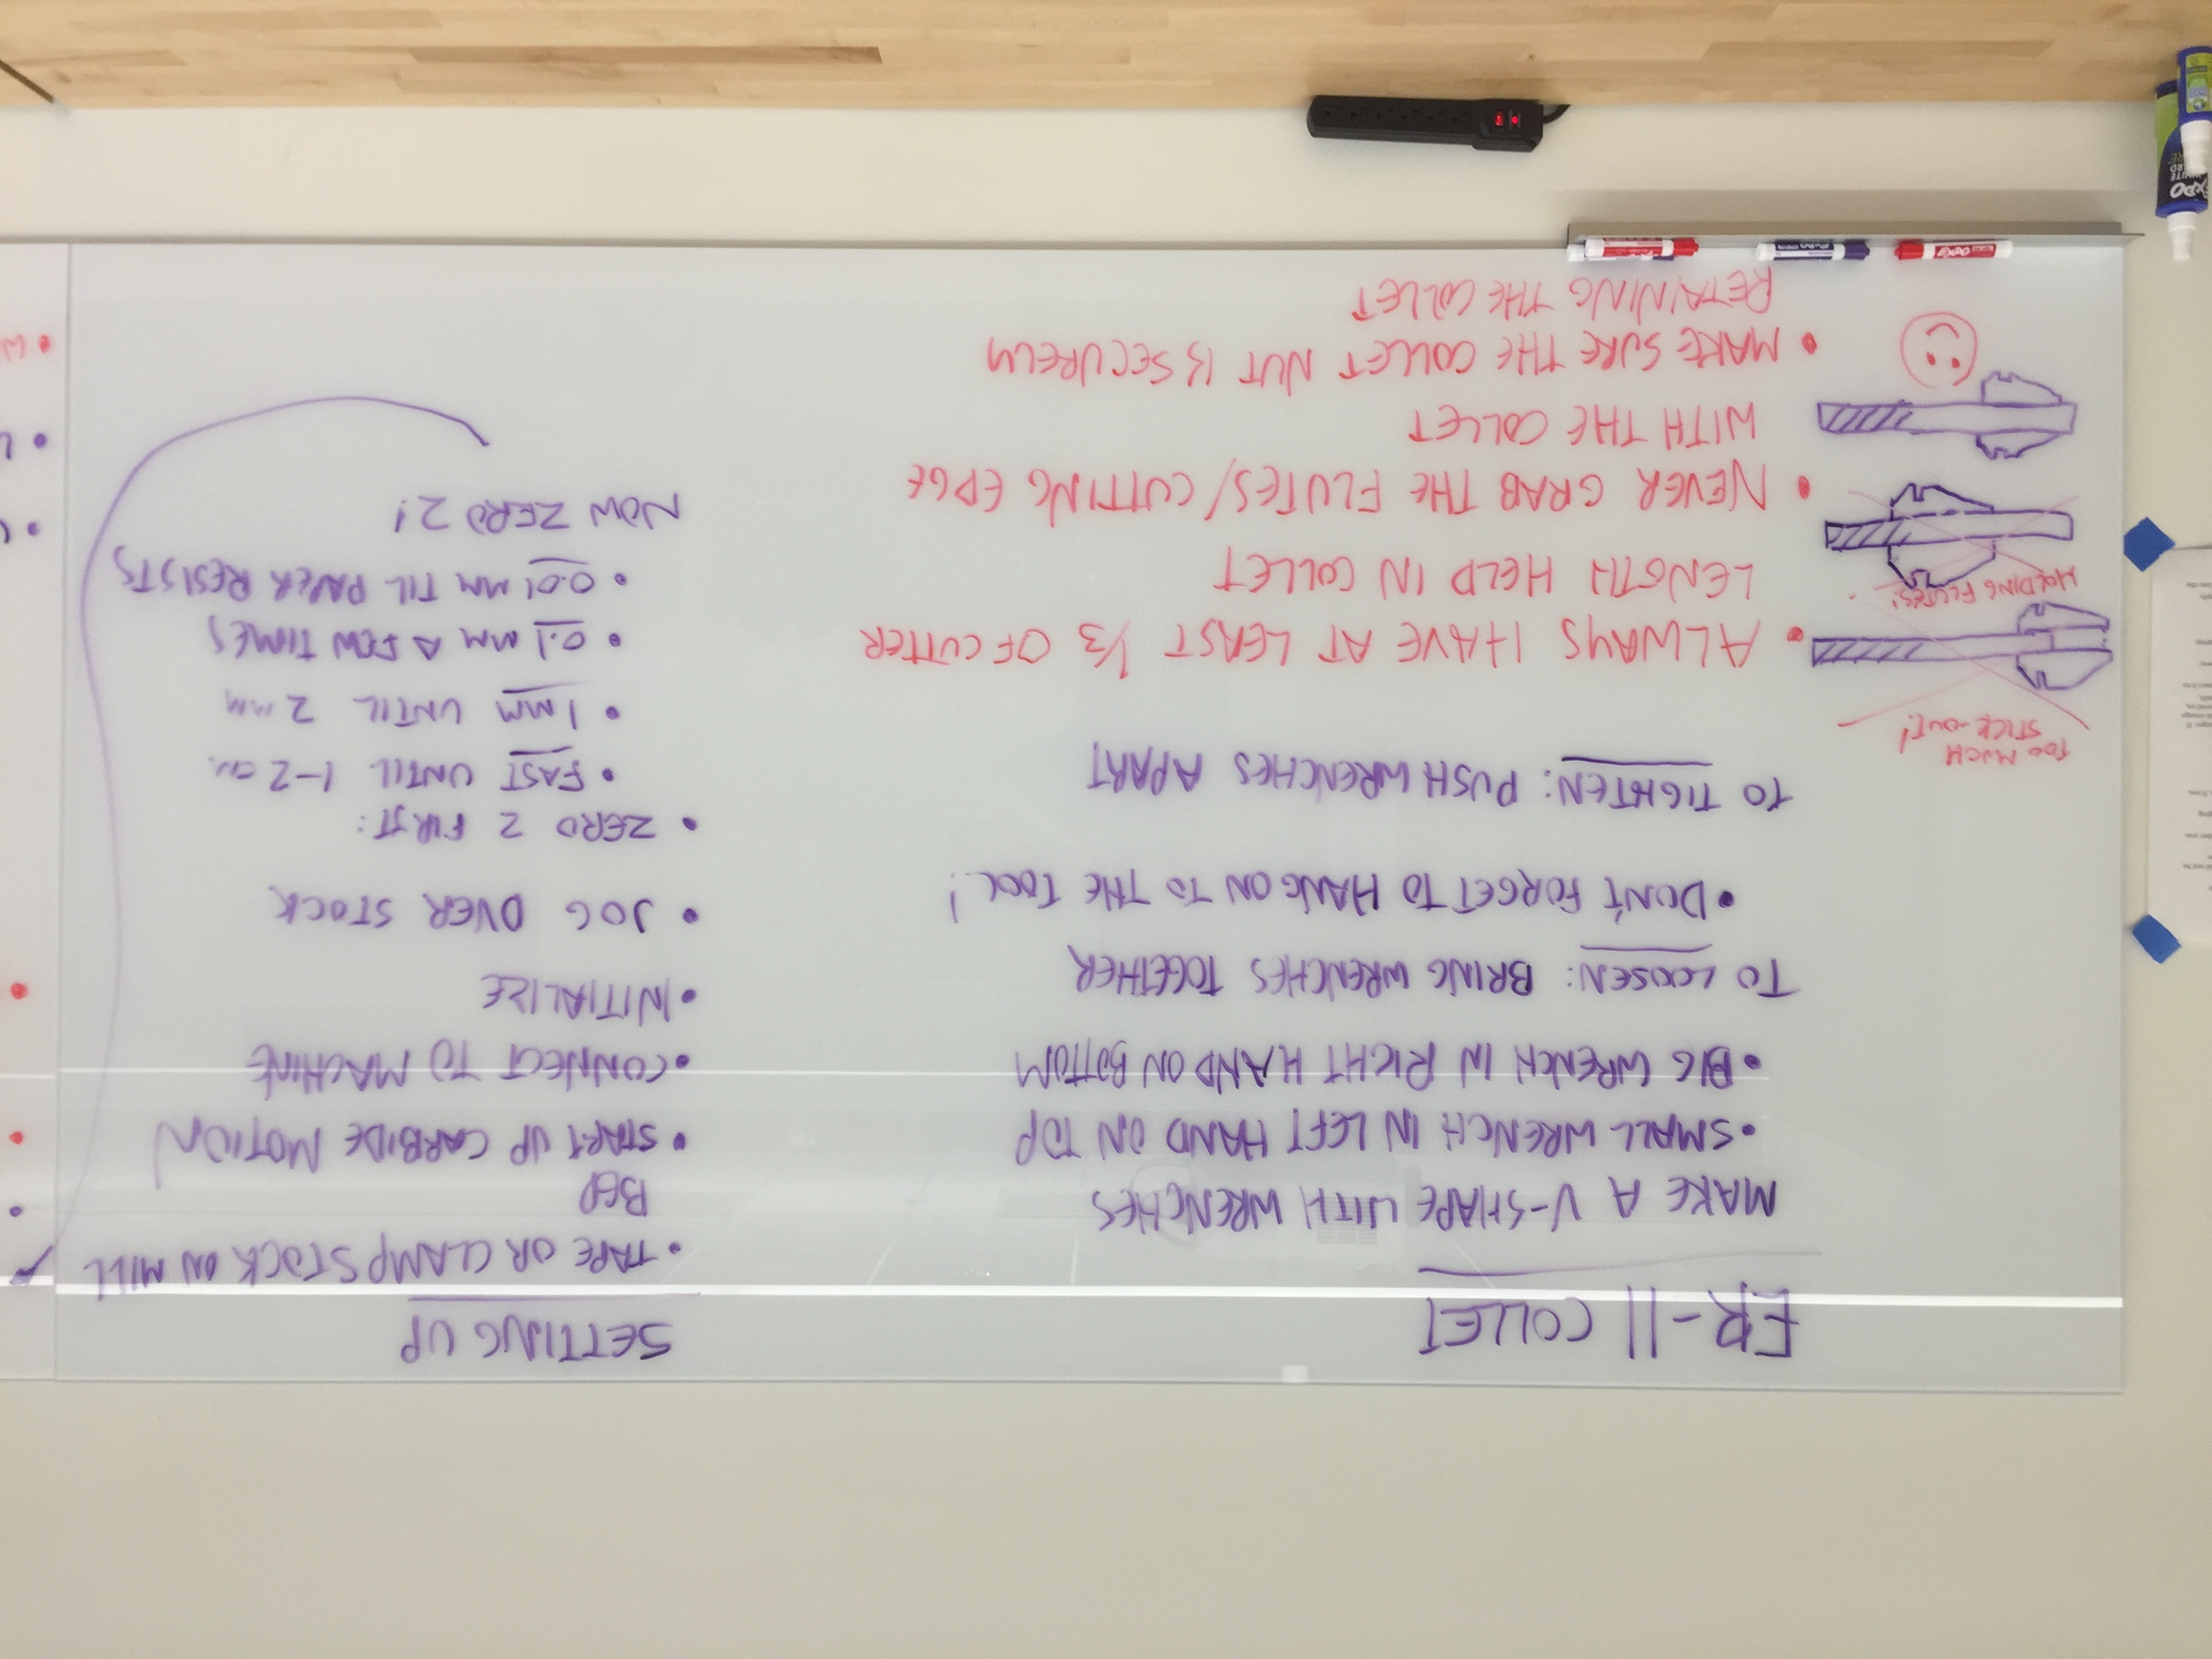 ER-11 COLLET
MAKE A V-SHAPE WITH WRENCHES
• SMALL WRENCH IN LEFT HAND ON TOP
• BIG WRENCH IN RIGHT HAND ON BOTTOM
TO LOOSEN: BRING WRENCHES TOGETHER
• DON'T FORGET TO HANG ON TO THE TOOL!
TO TIGHTEN: PUSH WRENCHES APART
TOO MUCH
STICK-OUT!
HOLDING FLUTES!
• ALWAYS HAVE AT LEAST 1/3 OF CUTTER
LENGTH HELD IN COLLET
• NEVER GRAB THE FLUTES/CUTTING EDGE
WITH THE COLLET
• MAKE SURE THE COLLET NUT IS SECURELY
RETAINING THE COLLET
SETTING UP
• TAPE OR CLAMP STOCK ON MILL
BED
• START UP CARBIDE MOTION
• CONNECT TO MACHINE
• INITIALIZE
• JOG OVER STOCK
• ZERO Z FIRST:
• FAST UNTIL 1-2 cm.
• 1 MM UNTIL 2 MM
• 0.1 MM A FEW TIMES
• 0.01 MM TIL PAPER RESISTS
NOW ZERO Z!
EXPO